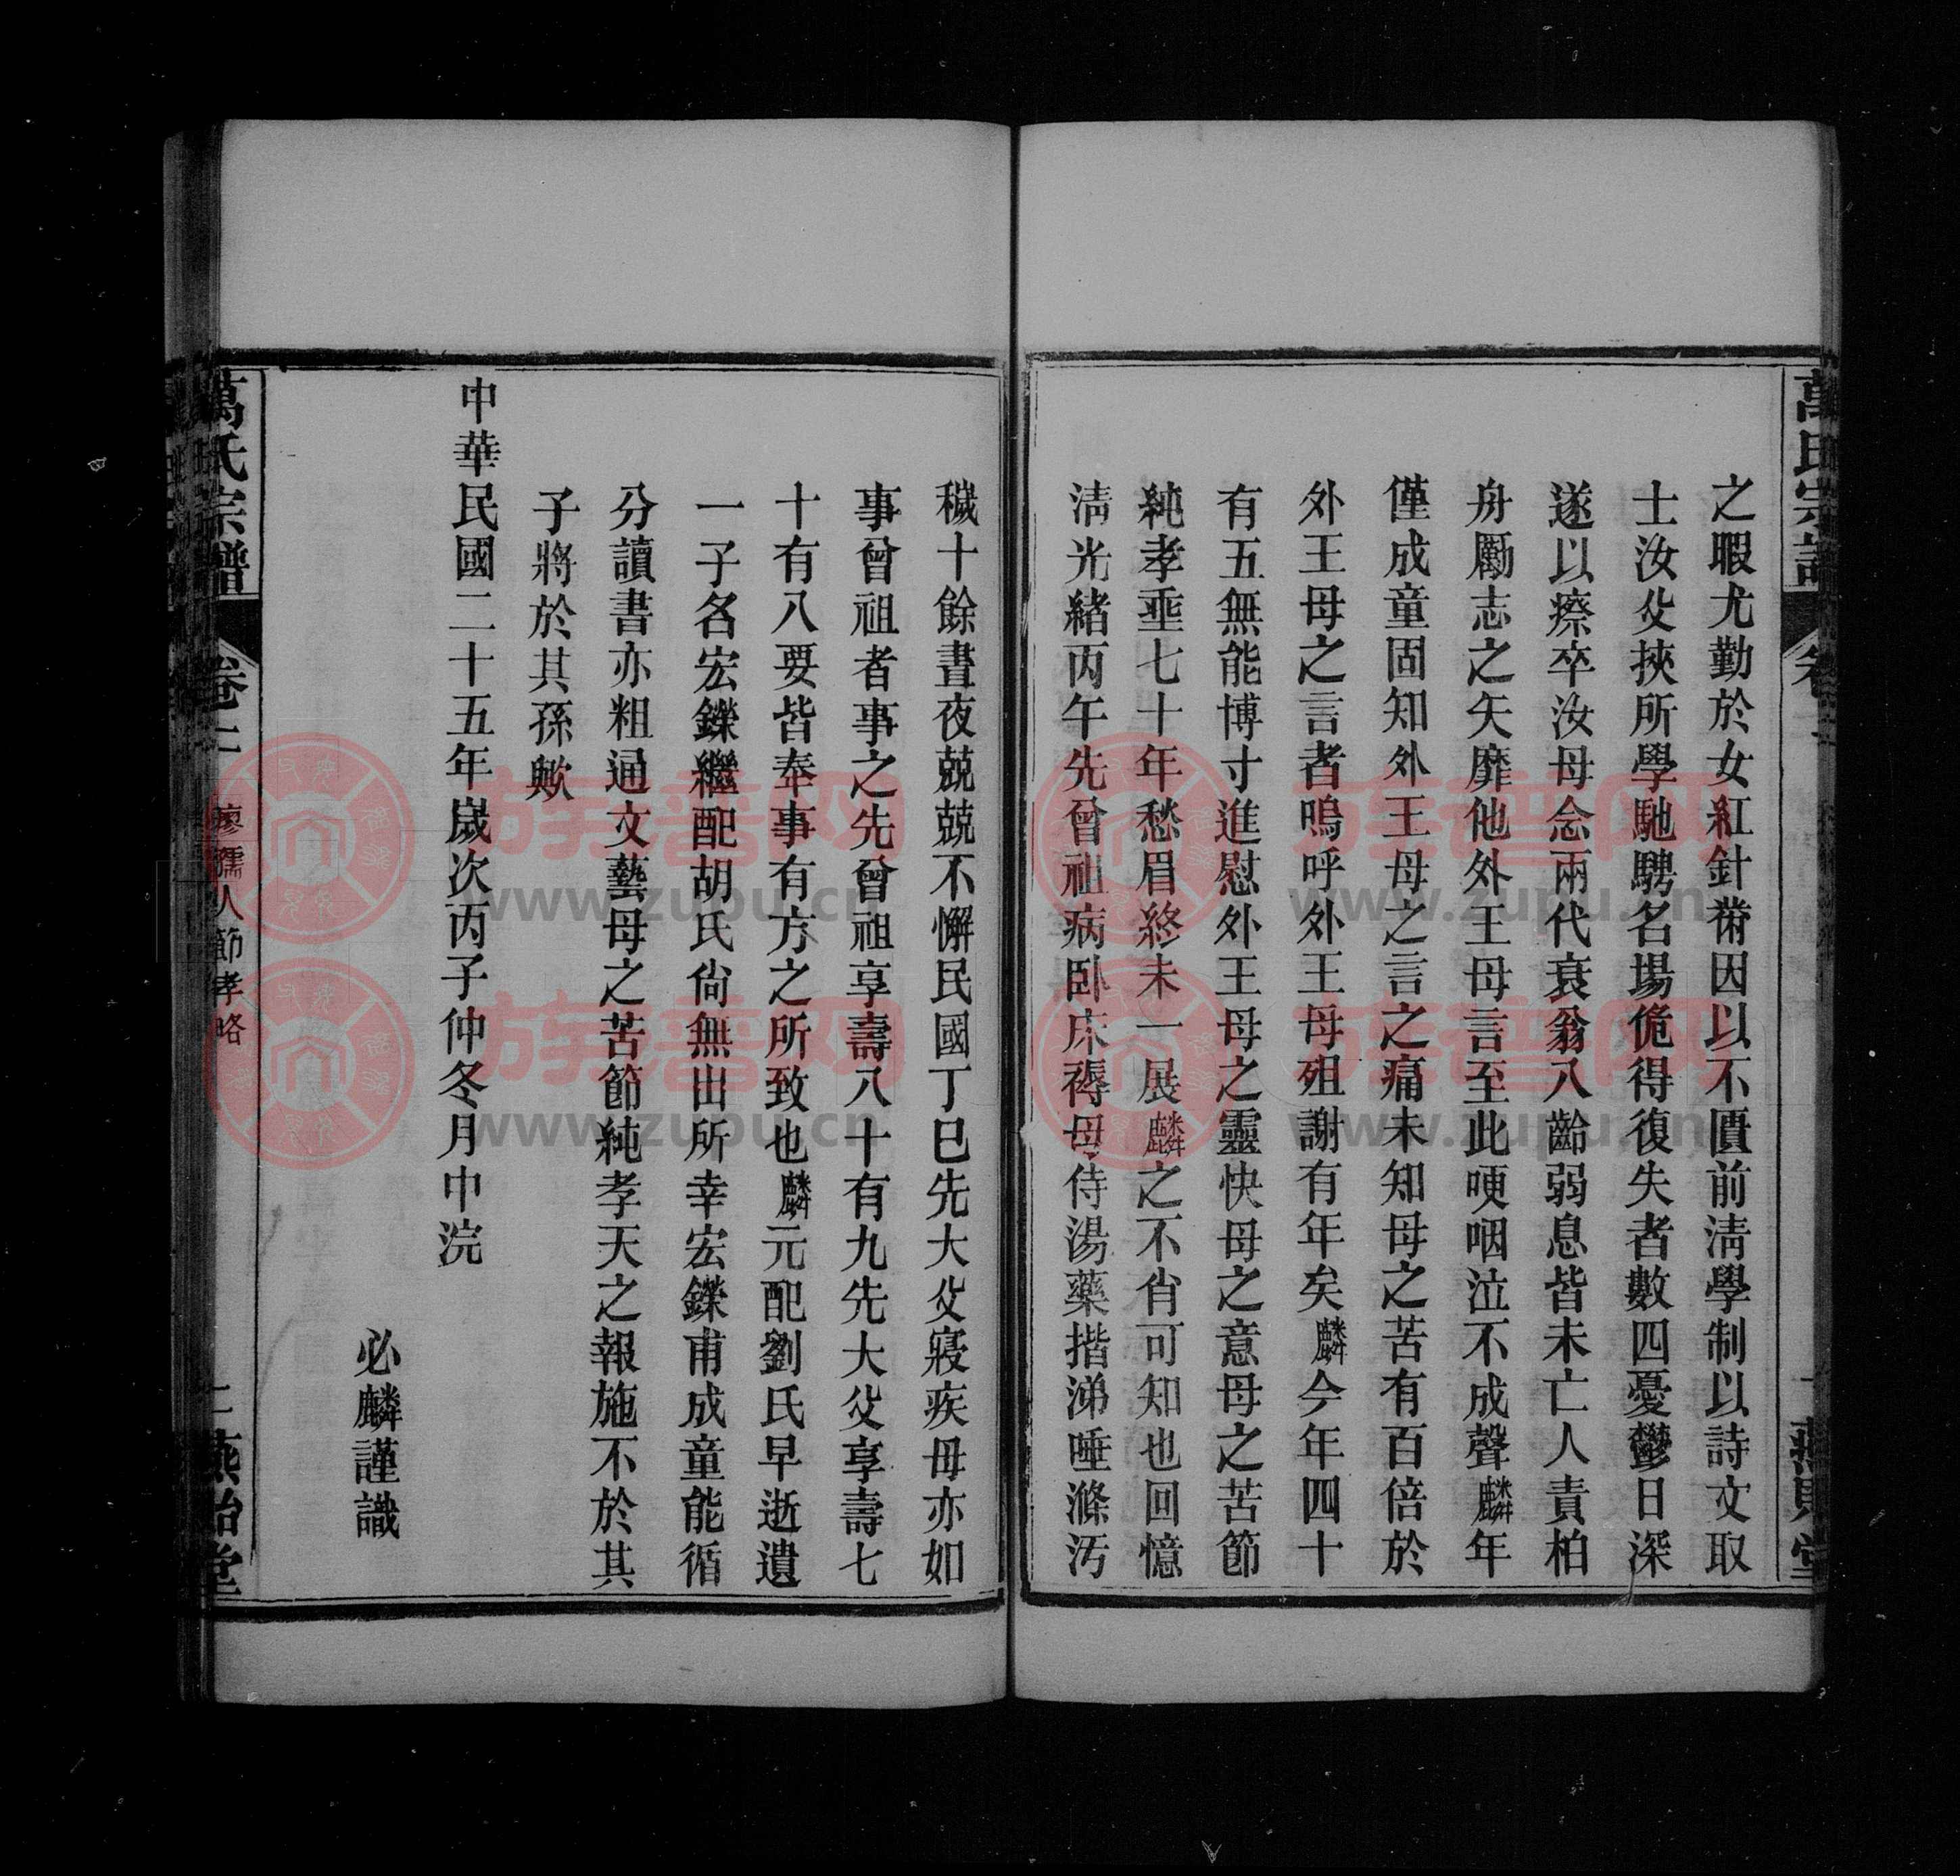 萬氏宗譜
卷二
燕貽堂
之暇尤勤於女紅針黹因以不匱前淸學制以詩文取
士汝父挾所學馳騁名場佹得復失者數四憂鬱日深
遂以瘵卒汝母念兩代衰翁八齡弱息皆未亡人責柏
舟勵志之矢靡他外王母言至此哽咽泣不成聲麟年
僅成童固知外王母之言之痛未知母之苦有百倍於
外王母之言者嗚呼外王母殂謝有年矣麟今年四十
有五無能博寸進慰外王母之靈快母之意母之苦節
純孝垂七十年愁眉終未一展麟之不肖可知也回憶
淸光緒丙午先曾祖病臥床褥母侍湯藥揩涕唾滌汚
穢十餘晝夜兢兢不懈民國丁巳先大父寢疾母亦如
事曾祖者事之先曾祖享壽八十有九先大父享壽七
十有八要皆奉事有方之所致也麟元配劉氏早逝遺
一子名宏鑠繼配胡氏尙無出所幸宏鑠甫成童能循
分讀書亦粗通文藝母之苦節純孝天之報施不於其
子將於其孫歟
中華民國二十五年歲次丙子仲冬月中浣
必麟謹識
萬氏宗譜
卷二
廖孺人節孝略
二
燕貽堂
族譜网
www.zupu.cn
族譜网
www.zupu.cn
族譜网
www.zupu.cn
族譜网
www.zupu.cn